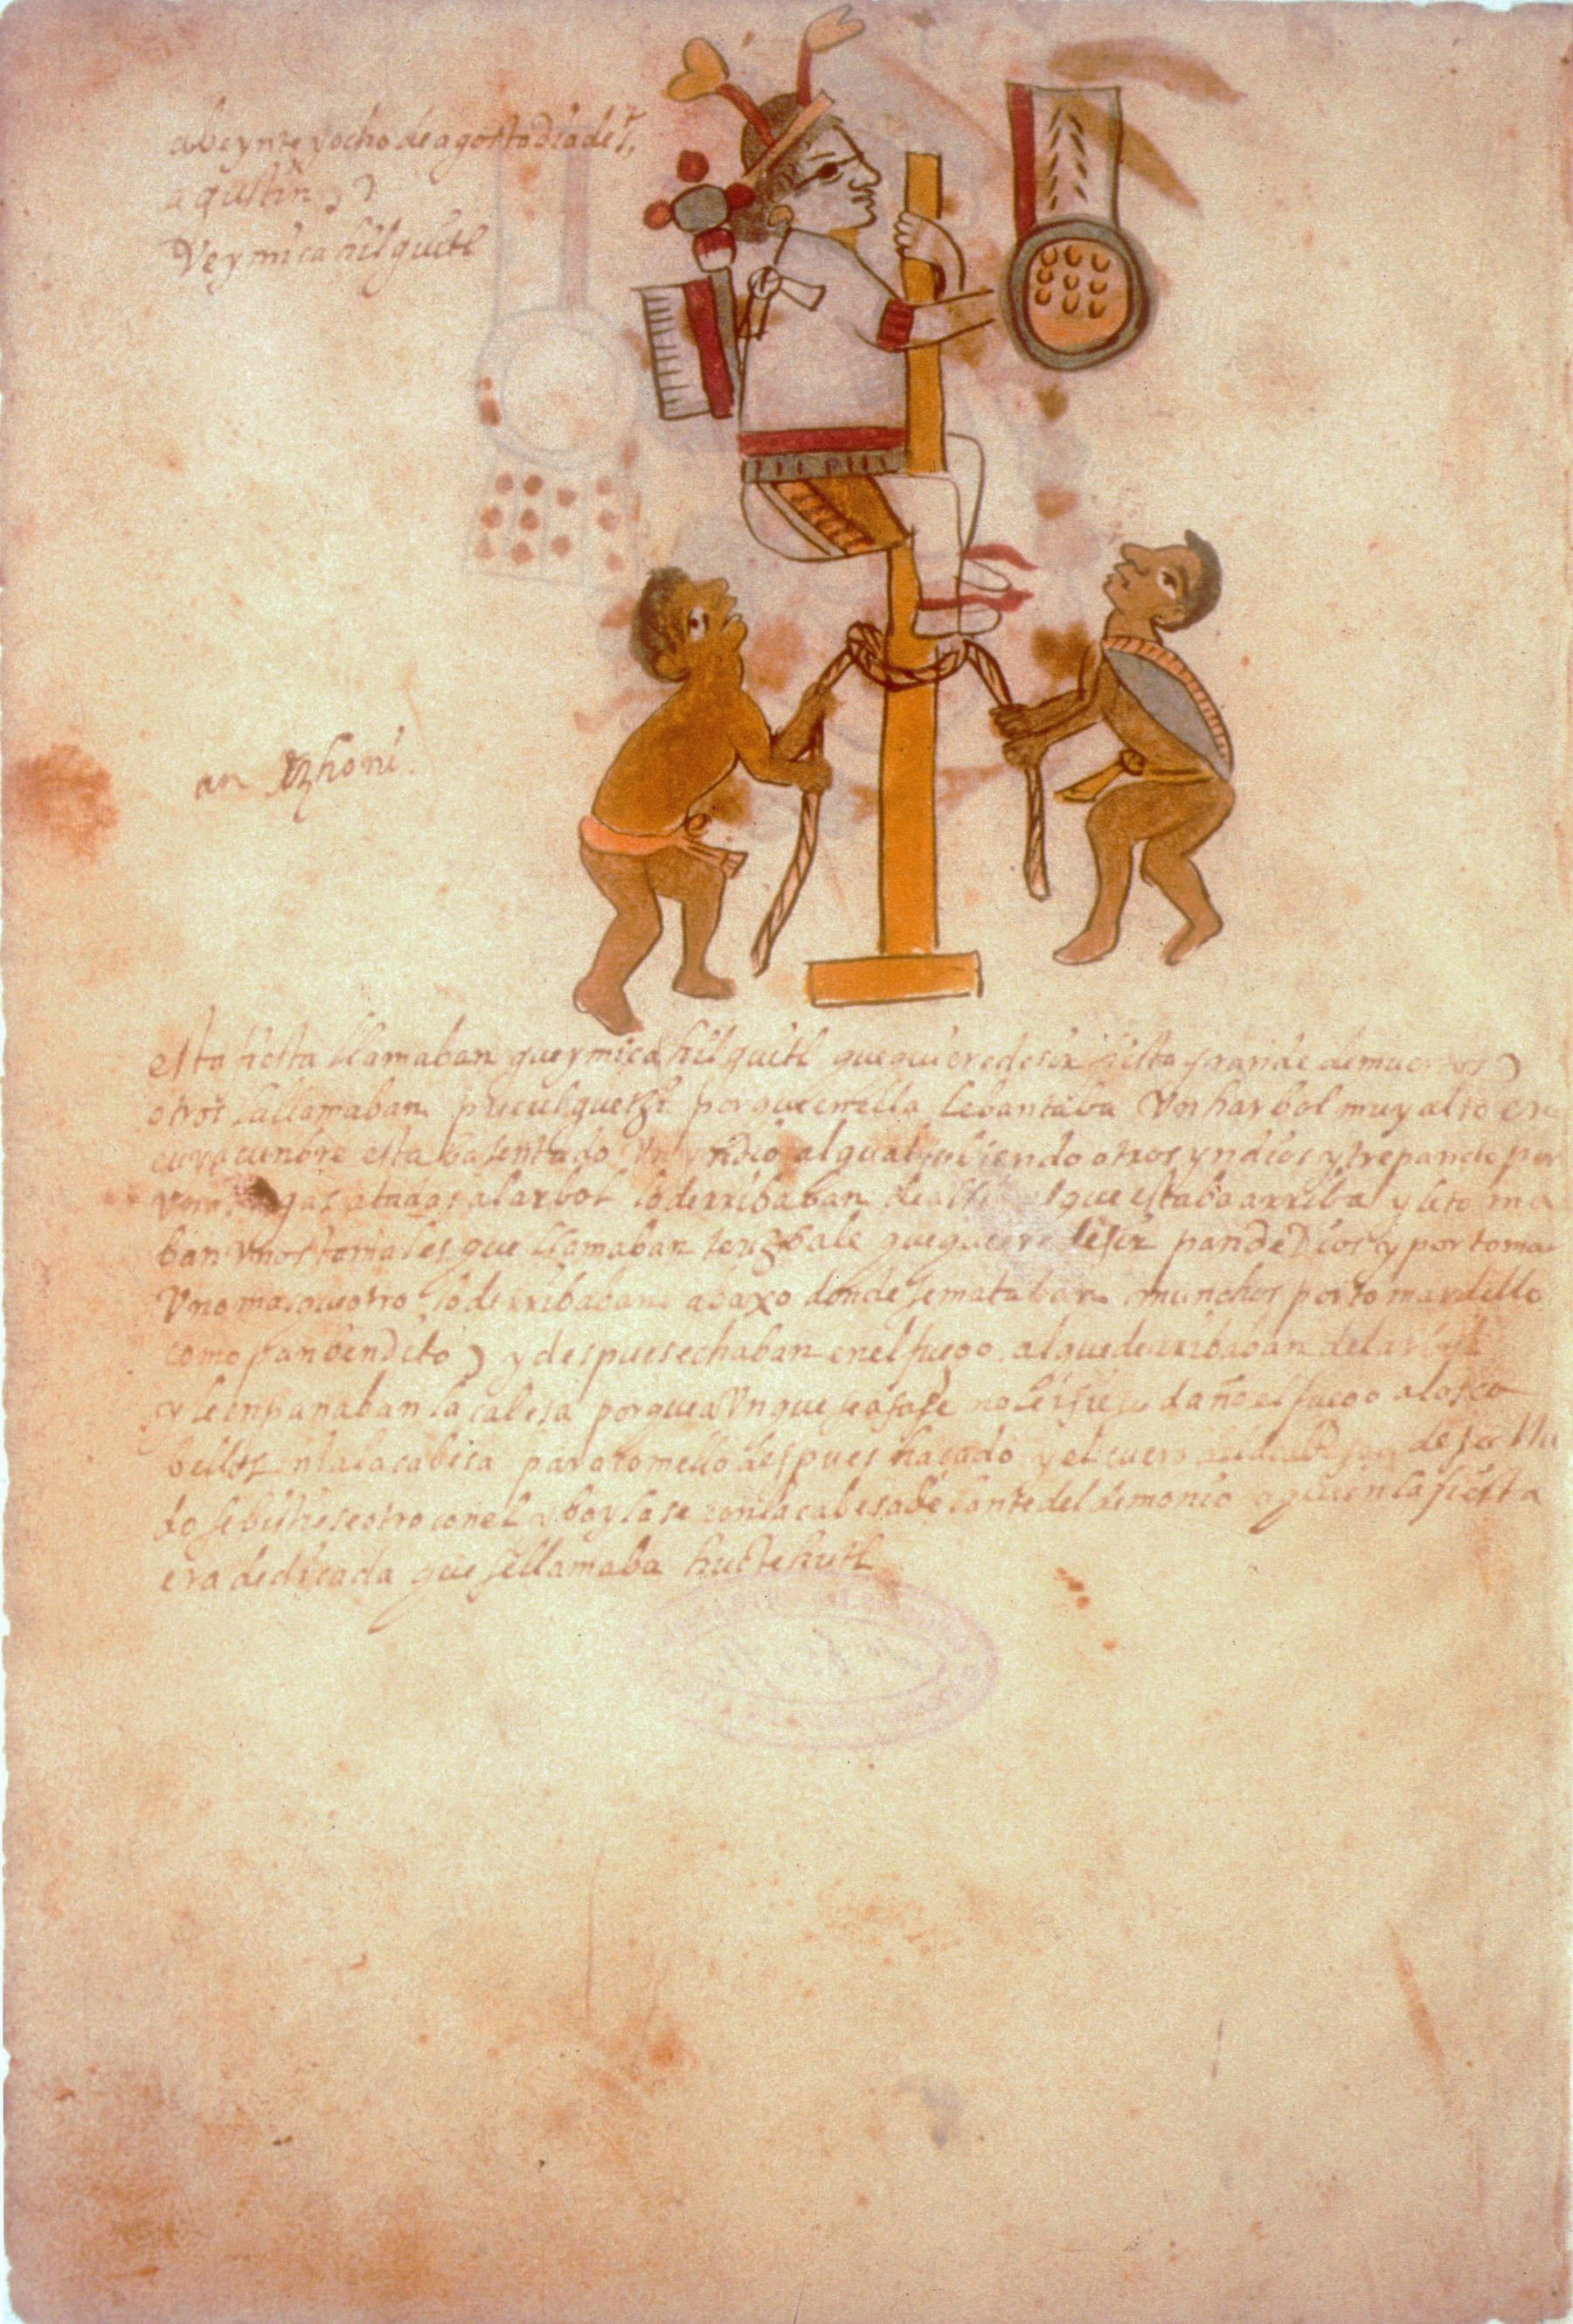 a beynte y ocho de agosto dia de s.
agustin
Vey mica hilguitl
an xhoni.
esta fiesta llamaban guey mica hilguitl que quiere desir fiesta grande de
otros la llamaban porque en ella lebantaba Vn harbol muy alto en
cuya cunbre estaba sentado Vn yndio al qual subiendo otros yndios y trepando por
atadas al arbol lo derribaban que estaba arriba y le toma
ban Vnos tamales que llamaban que quiere desir pan de Dios y por tomar
Vno mas que otro lo derribaban abaxo donde se mataban munchos por tomar dello
como pan bendito y despues echaban en el fuego al que derribaban del arbol
y le enpanaban la cabesa porque aVnque se asase no le hisiese daño el fuego a los ca
bellos ni a la cabesa para comello despues hasado y el cuero de
do se bistiese otro con el y baylase con la cabesa delante del demonio a quien la fiesta
era dedicada que se llamaba huetehutl